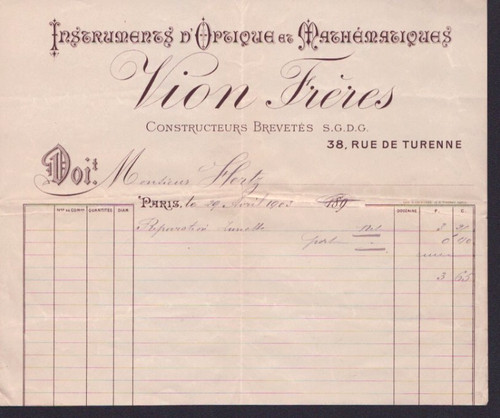 Instruments d'Optique et Mathématiques
Vion Frères
Constructeurs Brevetés S.G.D.G.
38, RUE DE TURENNE
Doit Monsieur
Paris, le 29 Avril 1902 189
QUANTITÉS DOUZAINE F. C.
Réparation lunette 3
port 0 40
3 65